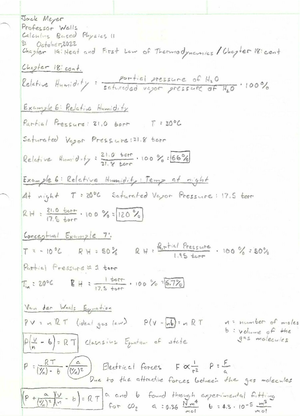 Jack Meyer
Professor Walls
Calculus Based Physics II
31 October, 2022
Chapter 19: Heat and First Law of Thermodynamics / Chapter 18 cont
Chapter 18 cont.
Relative Humidity = partial pressure of H₂O / saturated vapor pressure of H₂O · 100%
Example 6: Relative Humidity
Partial Pressure: 21.0 torr T = 30°C
Saturated Vapor Pressure: 31.8 torr
Relative Humidity = 21.0 torr / 31.8 torr · 100% = 66%
Example 6: Relative Humidity: Temp at night
At night T = 20°C Saturated Vapor Pressure: 17.5 torr
RH = 21.0 torr / 17.5 torr · 100% = 120%
Conceptual Example 7:
T = -10°C RH = 50% RH = Partial Pressure / 1.95 torr · 100% = 50%
Partial Pressure = 1 torr
T = 20°C RH = 1 torr / 17.5 torr · 100% = 5.7%
Van der Waals Equation
PV = nRT (ideal gas law) P(V - nb) = nRT n = number of moles
b = volume of the gas molecules
P(V/n - b) = RT Clausius Equation of state
P = RT / ((V/n) - b) - a / (V/n)² Electrical forces F ∝ 1/r² P = F/A
Due to the attractive forces between the gas molecules
(P + a / (V/n)²)(V/n - b) = RT a and b found through experimental fitting
for CO₂ a = 0.36 N·m⁴/mol² b = 4.3 × 10⁻⁵ m³/mol